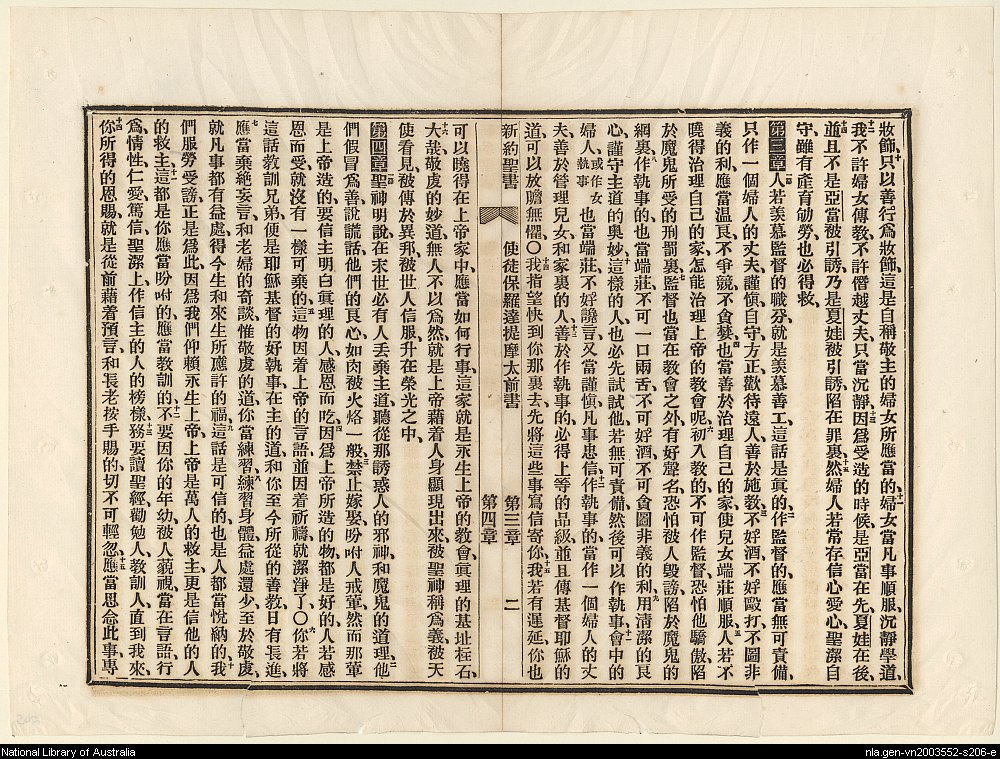 妝飾、十只以善行爲妝飾、這是自稱敬主的婦女所應當的、十一婦女當凡事順服、沉靜學道、
十二我不許婦女傳教、不許僭越丈夫、只當沉靜、十三因爲受造的時候、是亞當在先、夏娃在後、
十四並且不是亞當被引誘、乃是夏娃被引誘、陷在罪裏、十五然婦人若常存信心愛心、聖潔自
守、雖有產育劬勞、也必得救、
第三章一節人若羨慕監督的職分、就是羨慕善工、這話是眞的、二作監督的、應當無可責備、
只作一個婦人的丈夫、謹愼自守、方正、歡待遠人、善於施教、三不好酒、不好毆打、不圖非
義的利、應當温良、不爭競、不貪婪、四也當善於治理自己的家、使兒女端莊順服、五人若不
曉得治理自己的家、怎能治理上帝的教會呢、六初入教的、不可作監督、恐怕他驕傲、陷
於魔鬼所受的刑罰裏、七監督也當在教會之外、有好聲名、恐怕被人毀謗、陷於魔鬼的
網裏、八作執事的、也當端莊、不可一口兩舌、不可好酒、不可貪圖非義的利、九用清潔的良
心、謹守主道的奧妙、十這樣的人、也必先試試他、若無可責備、然後可以作執事、十一會中的
婦人或作女執事也當端莊、不好譏言、又當謹愼、凡事忠信、十二作執事的、當作一個婦人的丈
夫、善於管理兒女和家裏的人、十三善於作執事的、必得上等的品級、並且傳基督耶穌的
道、可以放膽無懼、〇十四我指望快到你那裏去、先將這些事寫信寄你、十五我若有遲延、你也
新約聖書 使徒保羅達提摩太前書 第三章 第四章 二
可以曉得在上帝家中、應當如何行事、這家就是永生上帝的教會、眞理的基址柱石、
十六大哉敬虔的妙道、無人不以爲然、就是上帝藉着人身顯現出來、被聖神稱爲義、被天
使看見、被傳於異邦、被世人信服、升在榮光之中、
第四章一節聖神明說、在末世必有人丟棄主道、聽從那誘惑人的邪神、和魔鬼的道理、二他
們假冒爲善、說謊話、他們的良心、如肉被火烙一般、三禁止嫁娶、吩咐人戒葷、然而那葷
是上帝造的、要信主明白眞理的人感恩而吃、四因爲上帝所造的物、都是好的、人若感
恩而受、就沒有一樣可棄的、五這物因着上帝的言語、並因着祈禱、就潔淨了、〇六你若將
這話教訓兄弟、便是耶穌基督的好執事、在主的道、和你至今所從的善教、日有長進、
七應當棄絕妄言、和老婦的奇談、惟敬虔的道、你當練習、八練習身體、益處還少、至於敬虔、
就凡事都有益處、得今生和來生所應許的福、九這話是可信的、也是人都當悅納的、十我
們服勞受謗、正是爲此、因爲我們仰賴永生上帝、上帝是萬人的救主、更是信他的人
的救主、十一這都是你應當吩咐的、應當教訓的、十二不要因你的年幼、被人藐視、當在言語、行
爲、情性、仁愛、篤信、聖潔上、作信主的人的榜樣、十三務要讀聖經、勸勉人、教訓人、直到我來、
十四你所得的恩賜、就是從前藉着預言、和長老按手賜的、切不可輕忽、十五應當思念此事、專
National Library of Australia
nla.gen-vn2003552-s206-e